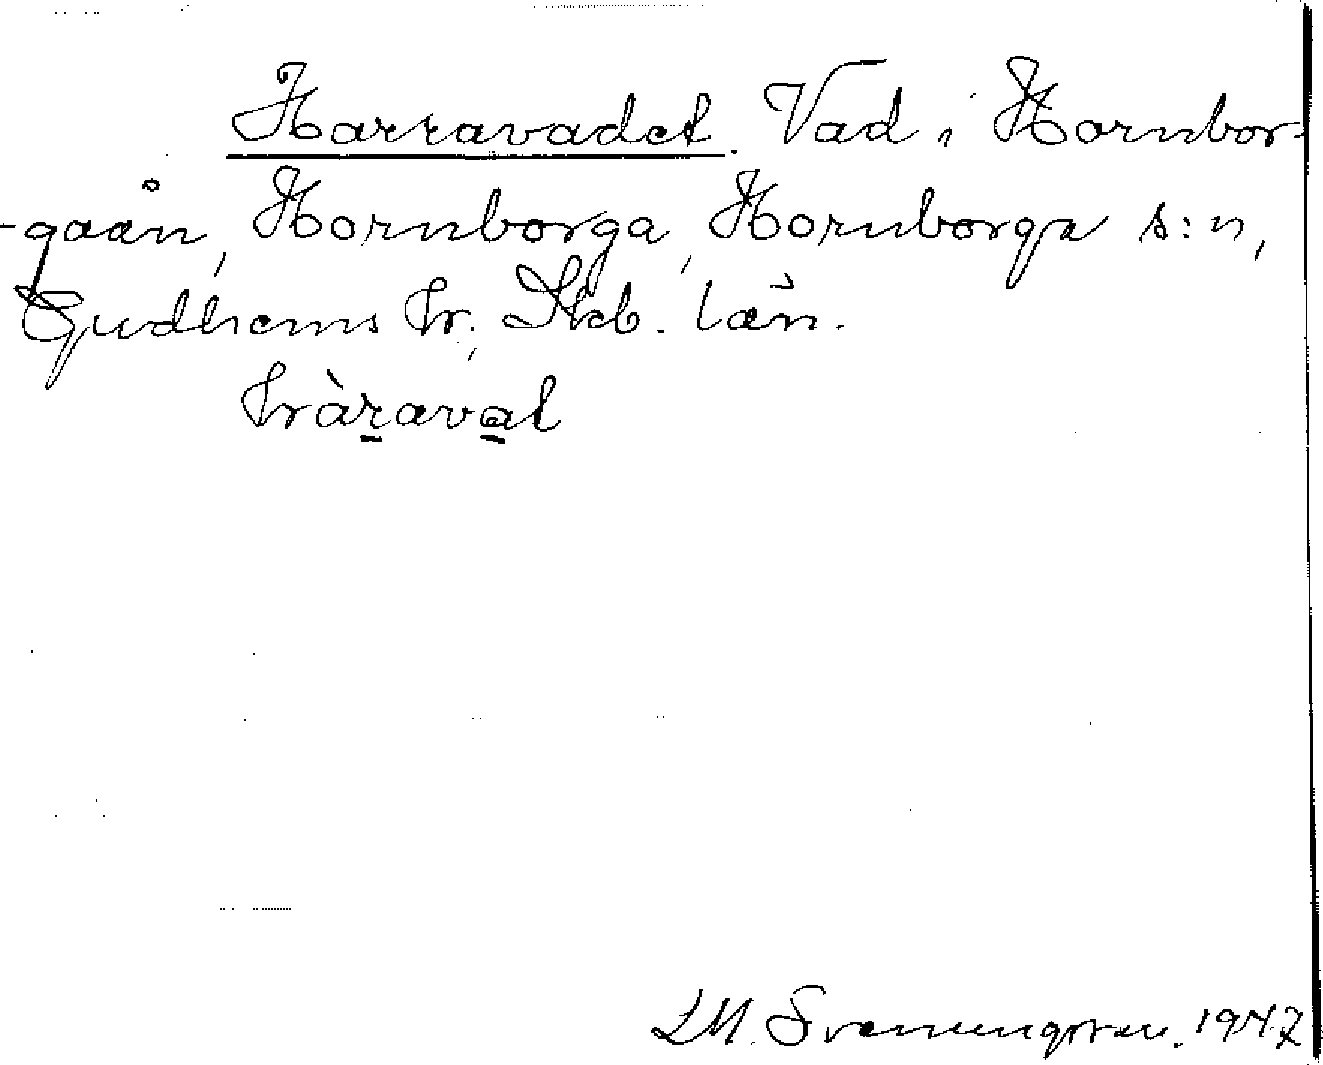 Harravadet. Vad i Hornbor-
-gaån, Hornborga, Hornborga s:n,
Gudhems hr., Skb. län.
hàraval
L M. Svenungsson. 1947